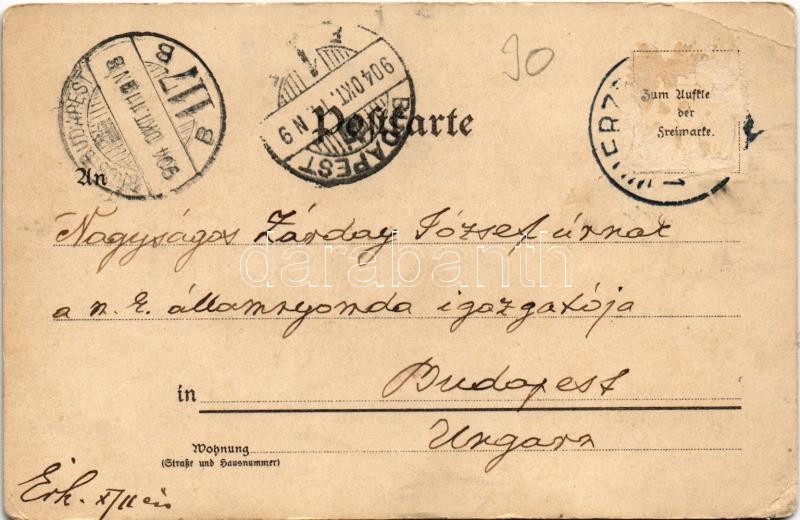 90
BUDAPEST
904 OKT. 11
B
B
BUDAPEST
904 OKT.
N 9
Postkarte
Zum Aufkle
der
Freimarke.
ERZ
1
An
Nagyságos Zárday József úrnak
a n. E. államnyomda igazgatója
darabanth
in Budapest
Ungarn
Wohnung
(Straße und Hausnummer)
Erh. X/11